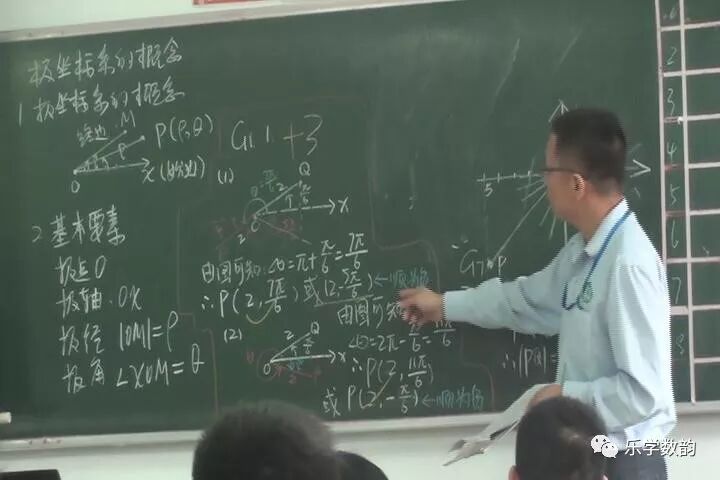 极坐标系的概念
1 极坐标系的概念
终边 M P(ρ,θ)
O X (始边)
2 基本要素
极点O
极轴 OX
极径 |OM|=ρ
极角 ∠XOM=θ
G1 1 +3
(1)
2 Q
O X
由图可知: =π+π/6=7π/6
∴P(2, 7π/6) 或(2,-5π/6) ←顺为负
(2)
2 Q
O X
由图可知
=2π-π/6=11π/6
∴P(2, 11π/6)
或 P(2,-π/6) ←顺为负
5
G7 P
∴|P
2
3
4
5
6
7
乐学数韵